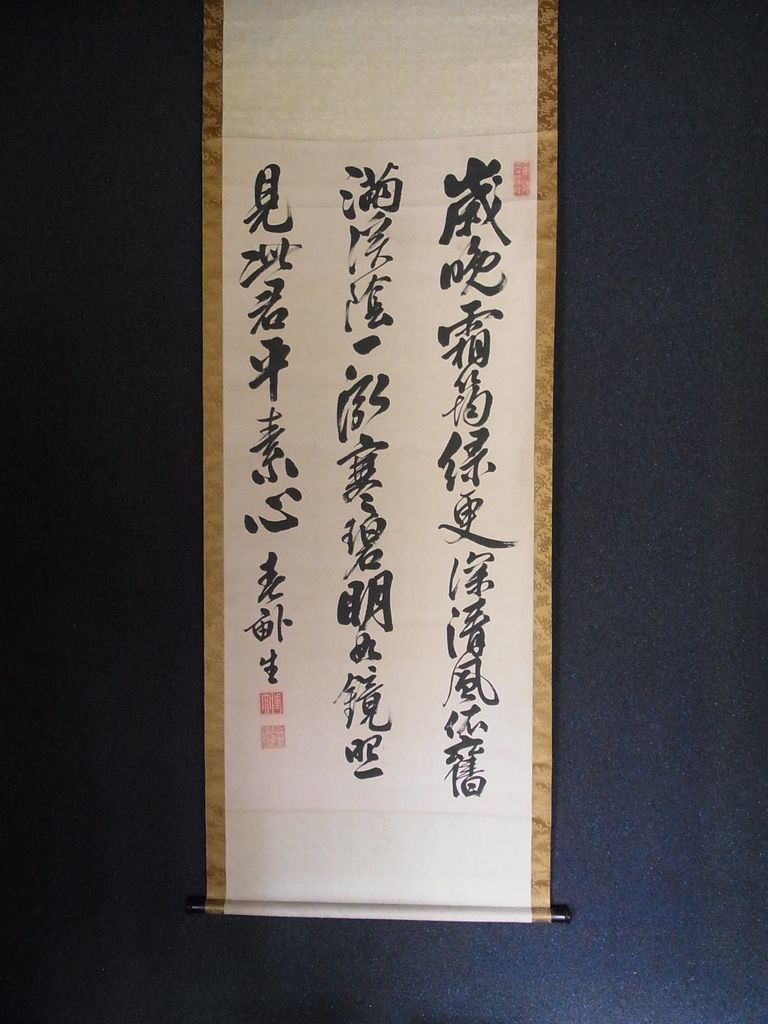 歲晩霜筠綠更深清風依舊
滿溪陰一泓寒碧明如鏡照
見此君平素心 春畝生